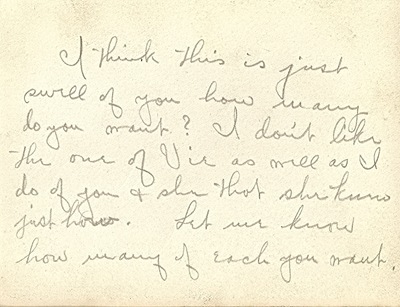 I think this is just
swell of you how many
do you want? I don't like
the one of Vic as well as I
do of you & she that she knew
just how. Let me know
how many of each you want.